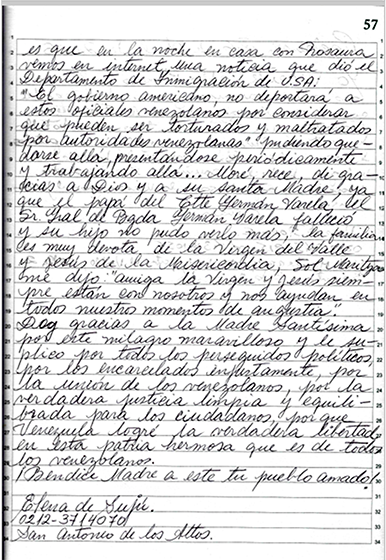 57
es que en la noche en casa con Rosaura
vemos en internet, una noticia que dió el
Departamento de Inmigración de USA:
"El gobierno americano, no deportará a
estos oficiales venezolanos por considerar
que pueden ser torturados y maltratados
por autoridades venezolanas" pudiendo que-
darse allá, presentándose periódicamente
y trabajando allá... Lloré, recé, di gra-
cias a Dios y a su santa Madre, ya
que el papá del Ctte Germán Varela, el
Sr Gral de Bgda Germán Varela falleció
y su hijo no pudo verlo más, la familia
es muy devota de la Virgen del Valle
y Jesús de la Misericordia, Sol Maritza
me dijo: "amiga la Virgen y Jesús siem-
pre están con nosotros y nos ayudan en
todos nuestros momentos de angustia".
Doy gracias a la Madre Santísima
por este milagro maravilloso y le su-
plico por todos los perseguidos políticos,
por los encarcelados injustamente, por
la unión de los venezolanos, por la
verdadera justicia limpia y equili-
brada para los ciudadanos, porque
Venezuela logre la verdadera libertad,
en esta patria hermosa que es de todos
los venezolanos.
¡Bendice Madre a este tu pueblo amado!
Elena de
0212-3714070
San Antonio de los Altos.